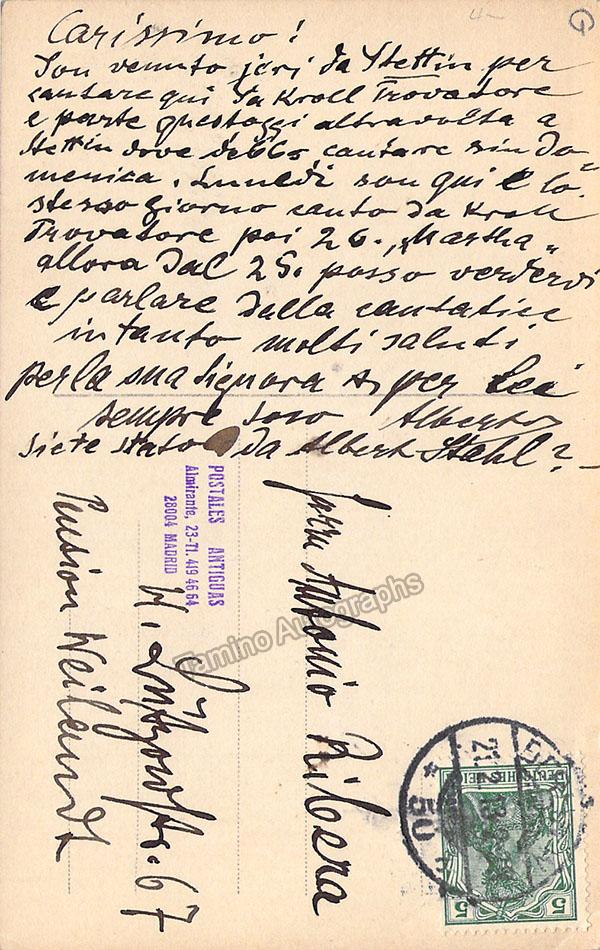 Carissimo!
Son venuto jeri da Stettin per
cantare qui da Kroll Trovatore
e parte questoggi altravolta a
Stettin dove debbo cantare sin do-
menica. Lunedi son qui e lo
stesso giorno canto da Kroll
Trovatore poi 26. „Martha"
allora dal 25. posso vedervi
e parlare della cantatice
intanto molti saluti
per la sua Signora e per Lei
sempre suo Alberto
siete stato da Albert Stahl?
POSTALES ANTIGUAS
Almirante, 23-Tl. 419 46 64
28004 MADRID
Herrn Antonio Ribera
W. Lützowstr. 67
Pension Weilandt
Tamino Autographs
DEUTSCHES REICH
5 5
50
G